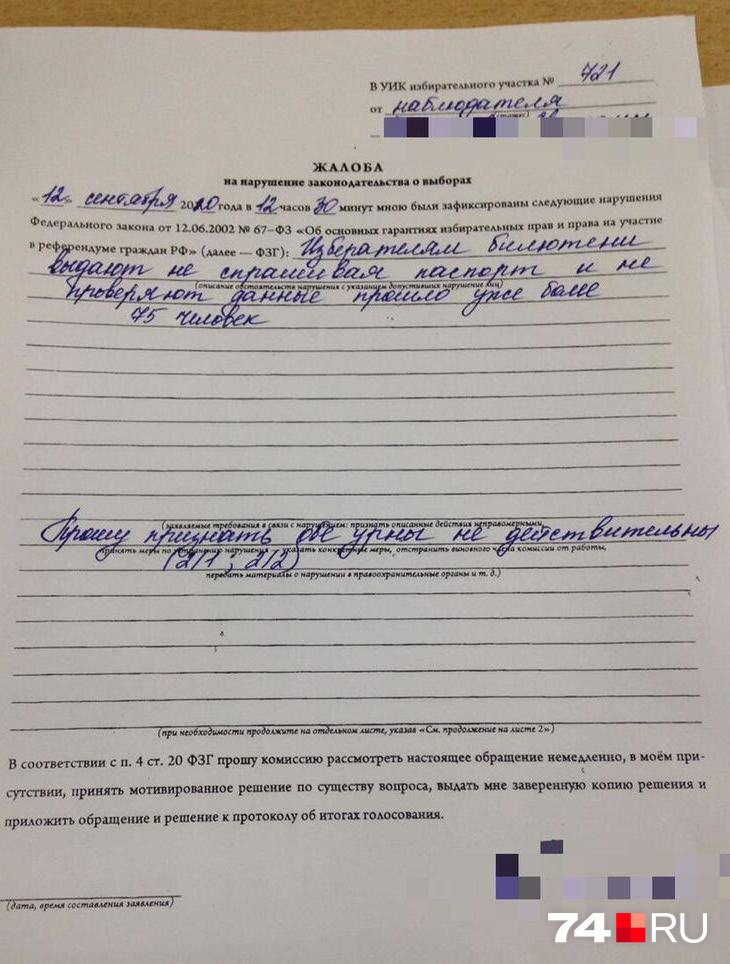 В УИК избирательного участка № 721
от наблюдателя
(статус)
ЖАЛОБА
на нарушение законодательства о выборах
«12» сентября 2020 года в 12 часов 30 минут мною были зафиксированы следующие нарушения
Федерального закона от 12.06.2002 № 67-ФЗ «Об основных гарантиях избирательных прав и права на участие
в референдуме граждан РФ» (далее — ФЗГ): Изберателям билютени
выдают не спрашивая паспорт и не
(описание обстоятельств нарушения с указанием допустивших нарушение лиц)
проверяют данные прошло уже боле
75 человек
(заявляемые требования в связи с нарушением: признать описанные действия неправомерными,
Прошу признать обе урны не действительны
принять меры по устранению нарушения — указать конкретные меры, отстранить виновного члена комиссии от работы,
(2/1; 2/2)
передать материалы о нарушении в правоохранительные органы и т. д.)
(при необходимости продолжите на отдельном листе, указав «См. продолжение на листе 2»)
В соответствии с п. 4 ст. 20 ФЗГ прошу комиссию рассмотреть настоящее обращение немедленно, в моём при-
сутствии, принять мотивированное решение по существу вопроса, выдать мне заверенную копию решения и
приложить обращение и решение к протоколу об итогах голосования.
(дата, время составления заявления)
74.RU